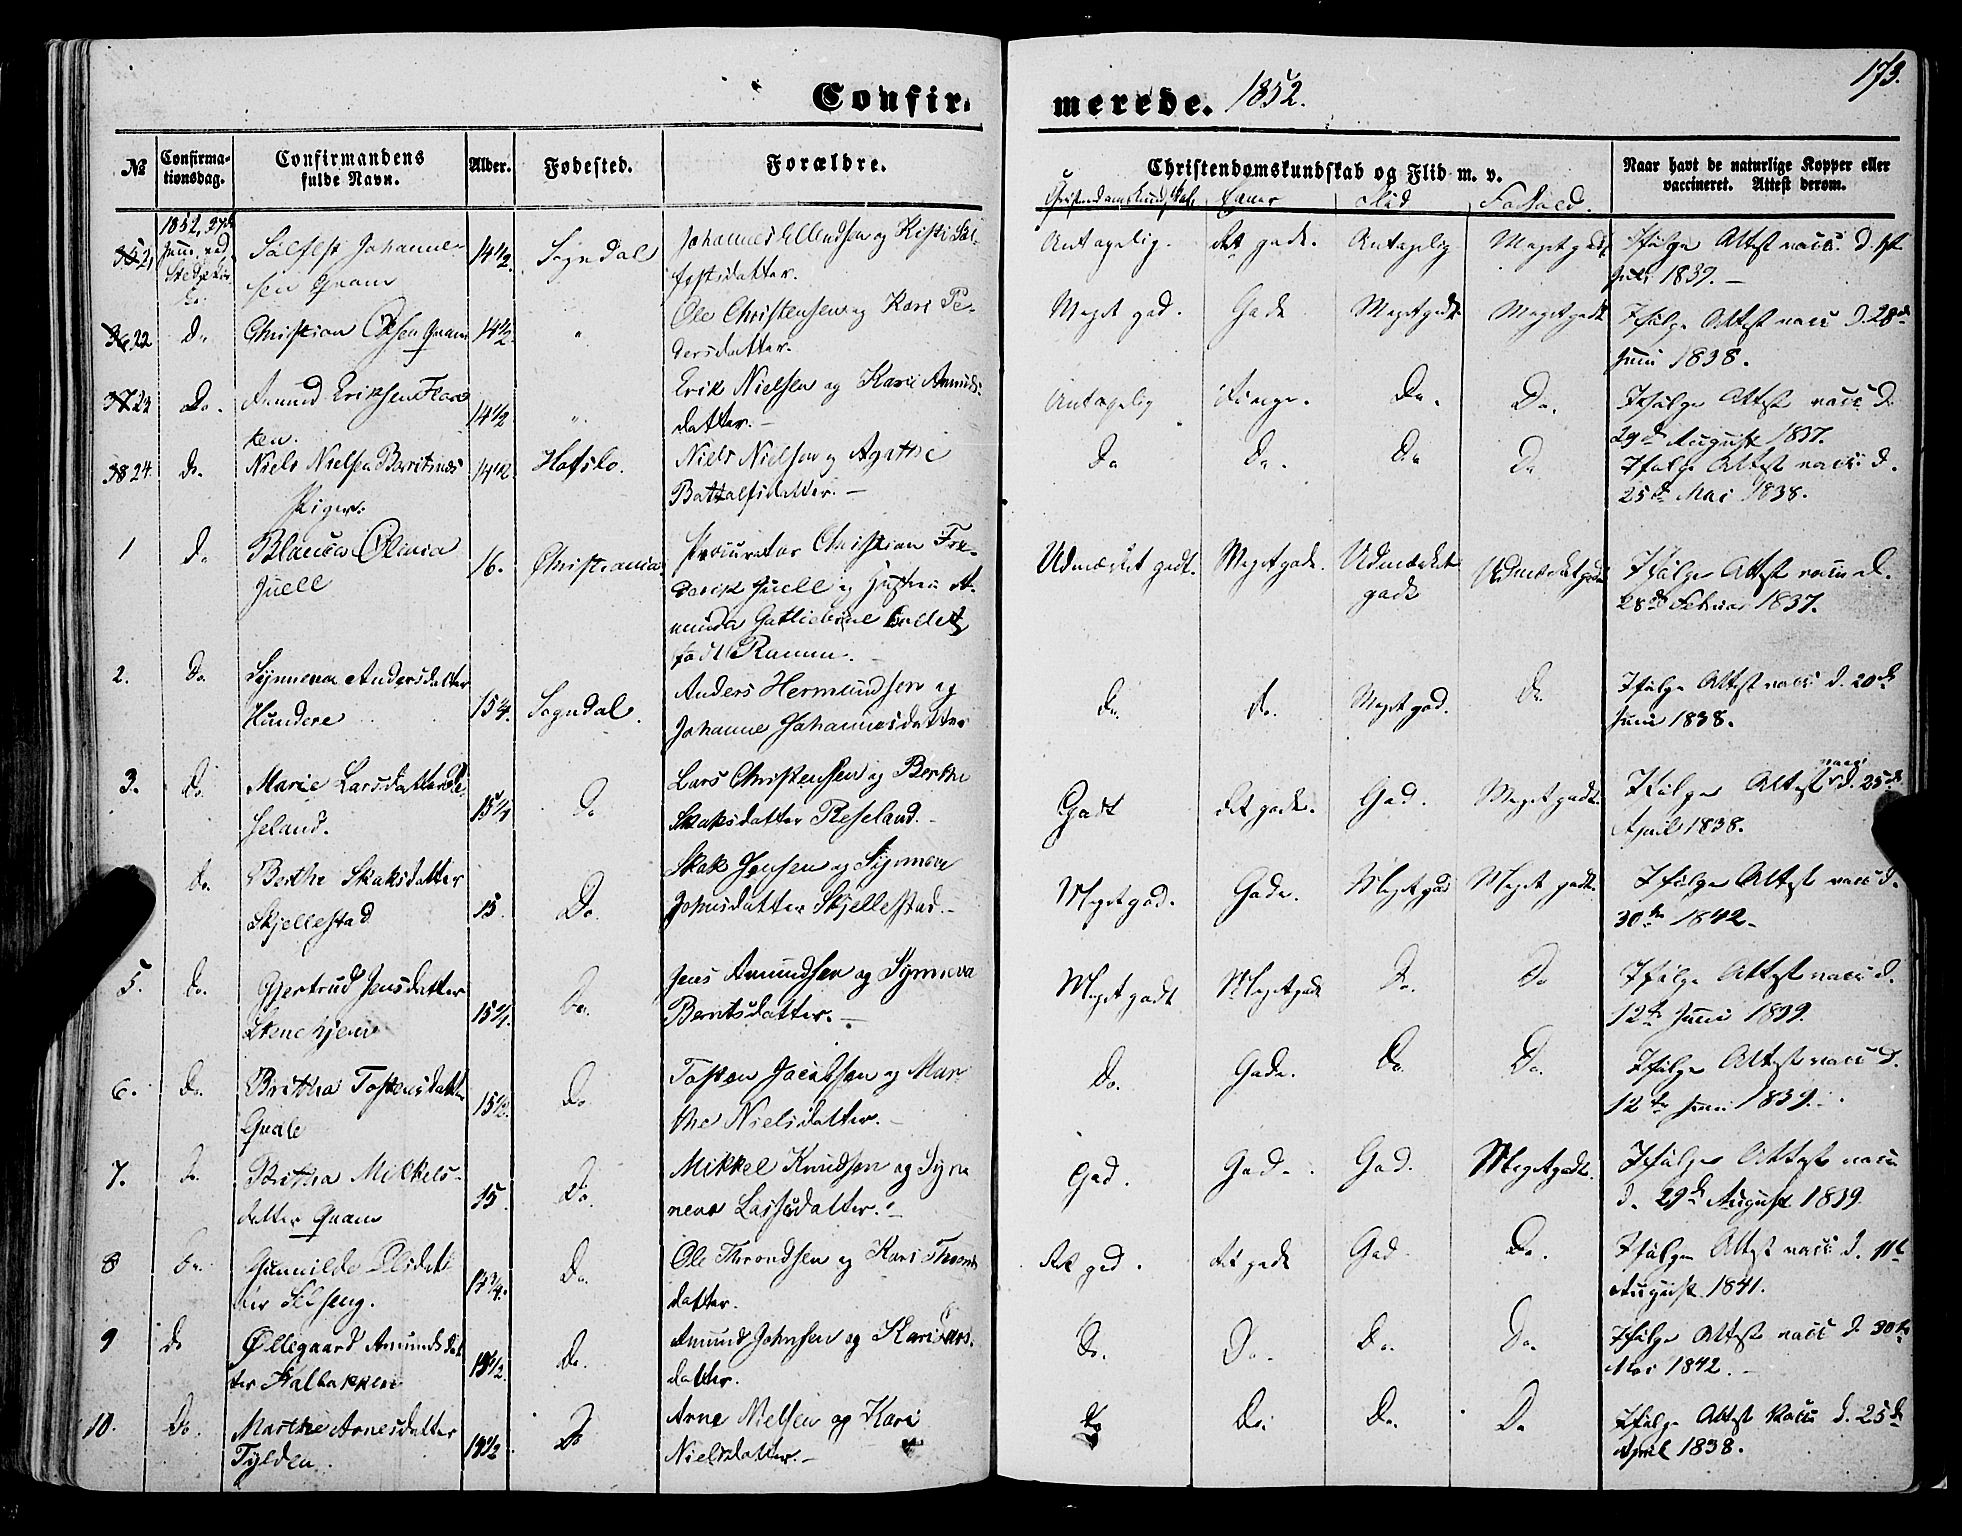 173.
Confir-
merede. 1852.
№
Confirma-
tionsdag.
Confirmandens
fulde Navn.
Alder.
Fødested.
Forældre.
Christendomskundskab og Flid m. v.
Naar havt de naturlige Kopper eller
vaccineret. Attest derom.
Flid
21
1852, 27de
Juni ved
Johanne-
sen Qvam
14½.
Sogndal
Johannes Ellendsen og Kirsti
datter.
Antagelig. Ret godt. Antagelig Meget godt
Ifølge Attest vacc. d.
1837.
22
Do
Christian Olsen Qvam
14½
"
Ole Christensen og Kari Pe-
dersdatter.
Meget god. Godt Meget godt Meget godt
Ifølge Attest vacc d. 28de
Juni 1838.
23
Do.
Amund Eriksen
14½
"
Erik Nielsen og Kari Amunds-
datter.
Antagelig Do. Do.
Ifølge Attest vacc d.
29de August 1837.
24.
Do
Niels Nielsen
14½
Hafslo.
Niels Nielsen og Agathe
datter.
Do Do. Do Do
Ifølge Attest vacc. d.
25de Mai 1838.
1
Do
Juell
16.
Christiania
Procurator Christian Fre-
derik Juell og Hustru
født Ramm.
Udmærket godt. Meget godt. Udmærket
godt
Udmærket godt
Ifølge Attest vacc d.
28de Februar 1837.
2.
Do
Synneva Andersdatter
Hundere
15¼.
Sogndal.
Anders Hermundsen og
Johanne Johannesdatter
Do. Do. Meget god. Do
Ifølge Attest vacc d. 20de
Juni 1838.
3.
Do
Marie Larsdatter Re-
seland.
15¼
Do
Lars Christensen og Berthe
Skaksdatter Reseland.
Godt Ret godt. God. Meget godt.
Ifølge Attest vacc d. 25de
April 1838.
Do
Berthe Skaksdatter
Skjellestad
15.
Do.
Skak Jensen og Synneve
Johnsdatter Skjellestad.
Meget god. Godt. Meget god Meget godt.
Ifølge Attest vacc d.
30te 1842.
5.
Do.
Gjertrud Jensdatter
Stenehjem
15¼.
Do.
Jens Amundsen og Synneva
Berntsdatter.
Meget godt Meget godt Do. Do
Ifølge Attest vacc d.
12te Juni 1839.
6.
Do.
Brittha Tostensdatter
Qvale
15½.
Do
Tosten Jacobsen og Mar-
the Nielsdatter.
Do. Godt. Do Do.
Ifølge Attest vacc d.
12te Juni 1839.
7.
Do.
Brittha Mikkels-
datter Qvam
15.
Do.
Mikkel Knudsen og Syn-
neva Lassesdatter.
God. Godt. God. Meget godt.
Ifølge Attest vacc
d. 29de August 1839.
8
Do.
Gunnilde Olsdat-
ter Selseng.
14¾.
Do.
Ole Throndsen og Kari Thronds-
datter.
Ret god. Ret godt God. Do.
Ifølge Attest vacc d. 11te
August 1841.
9
Do
Øllegaard Amundsdat-
ter Falbakken
14½.
Do.
Amund Johnsen og Kari Lars-
datter.
Do. Do. Do. Do.
Ifølge Attest vacc d. 30te
Mai 1842.
10.
Do.
Marthe Arnesdatter
Tylden.
14½.
Do
Arne Nielsen og Kari
Nielsdatter.
Do Do. Do. Do
Ifølge Attest vacc d. 25de
April 1838.